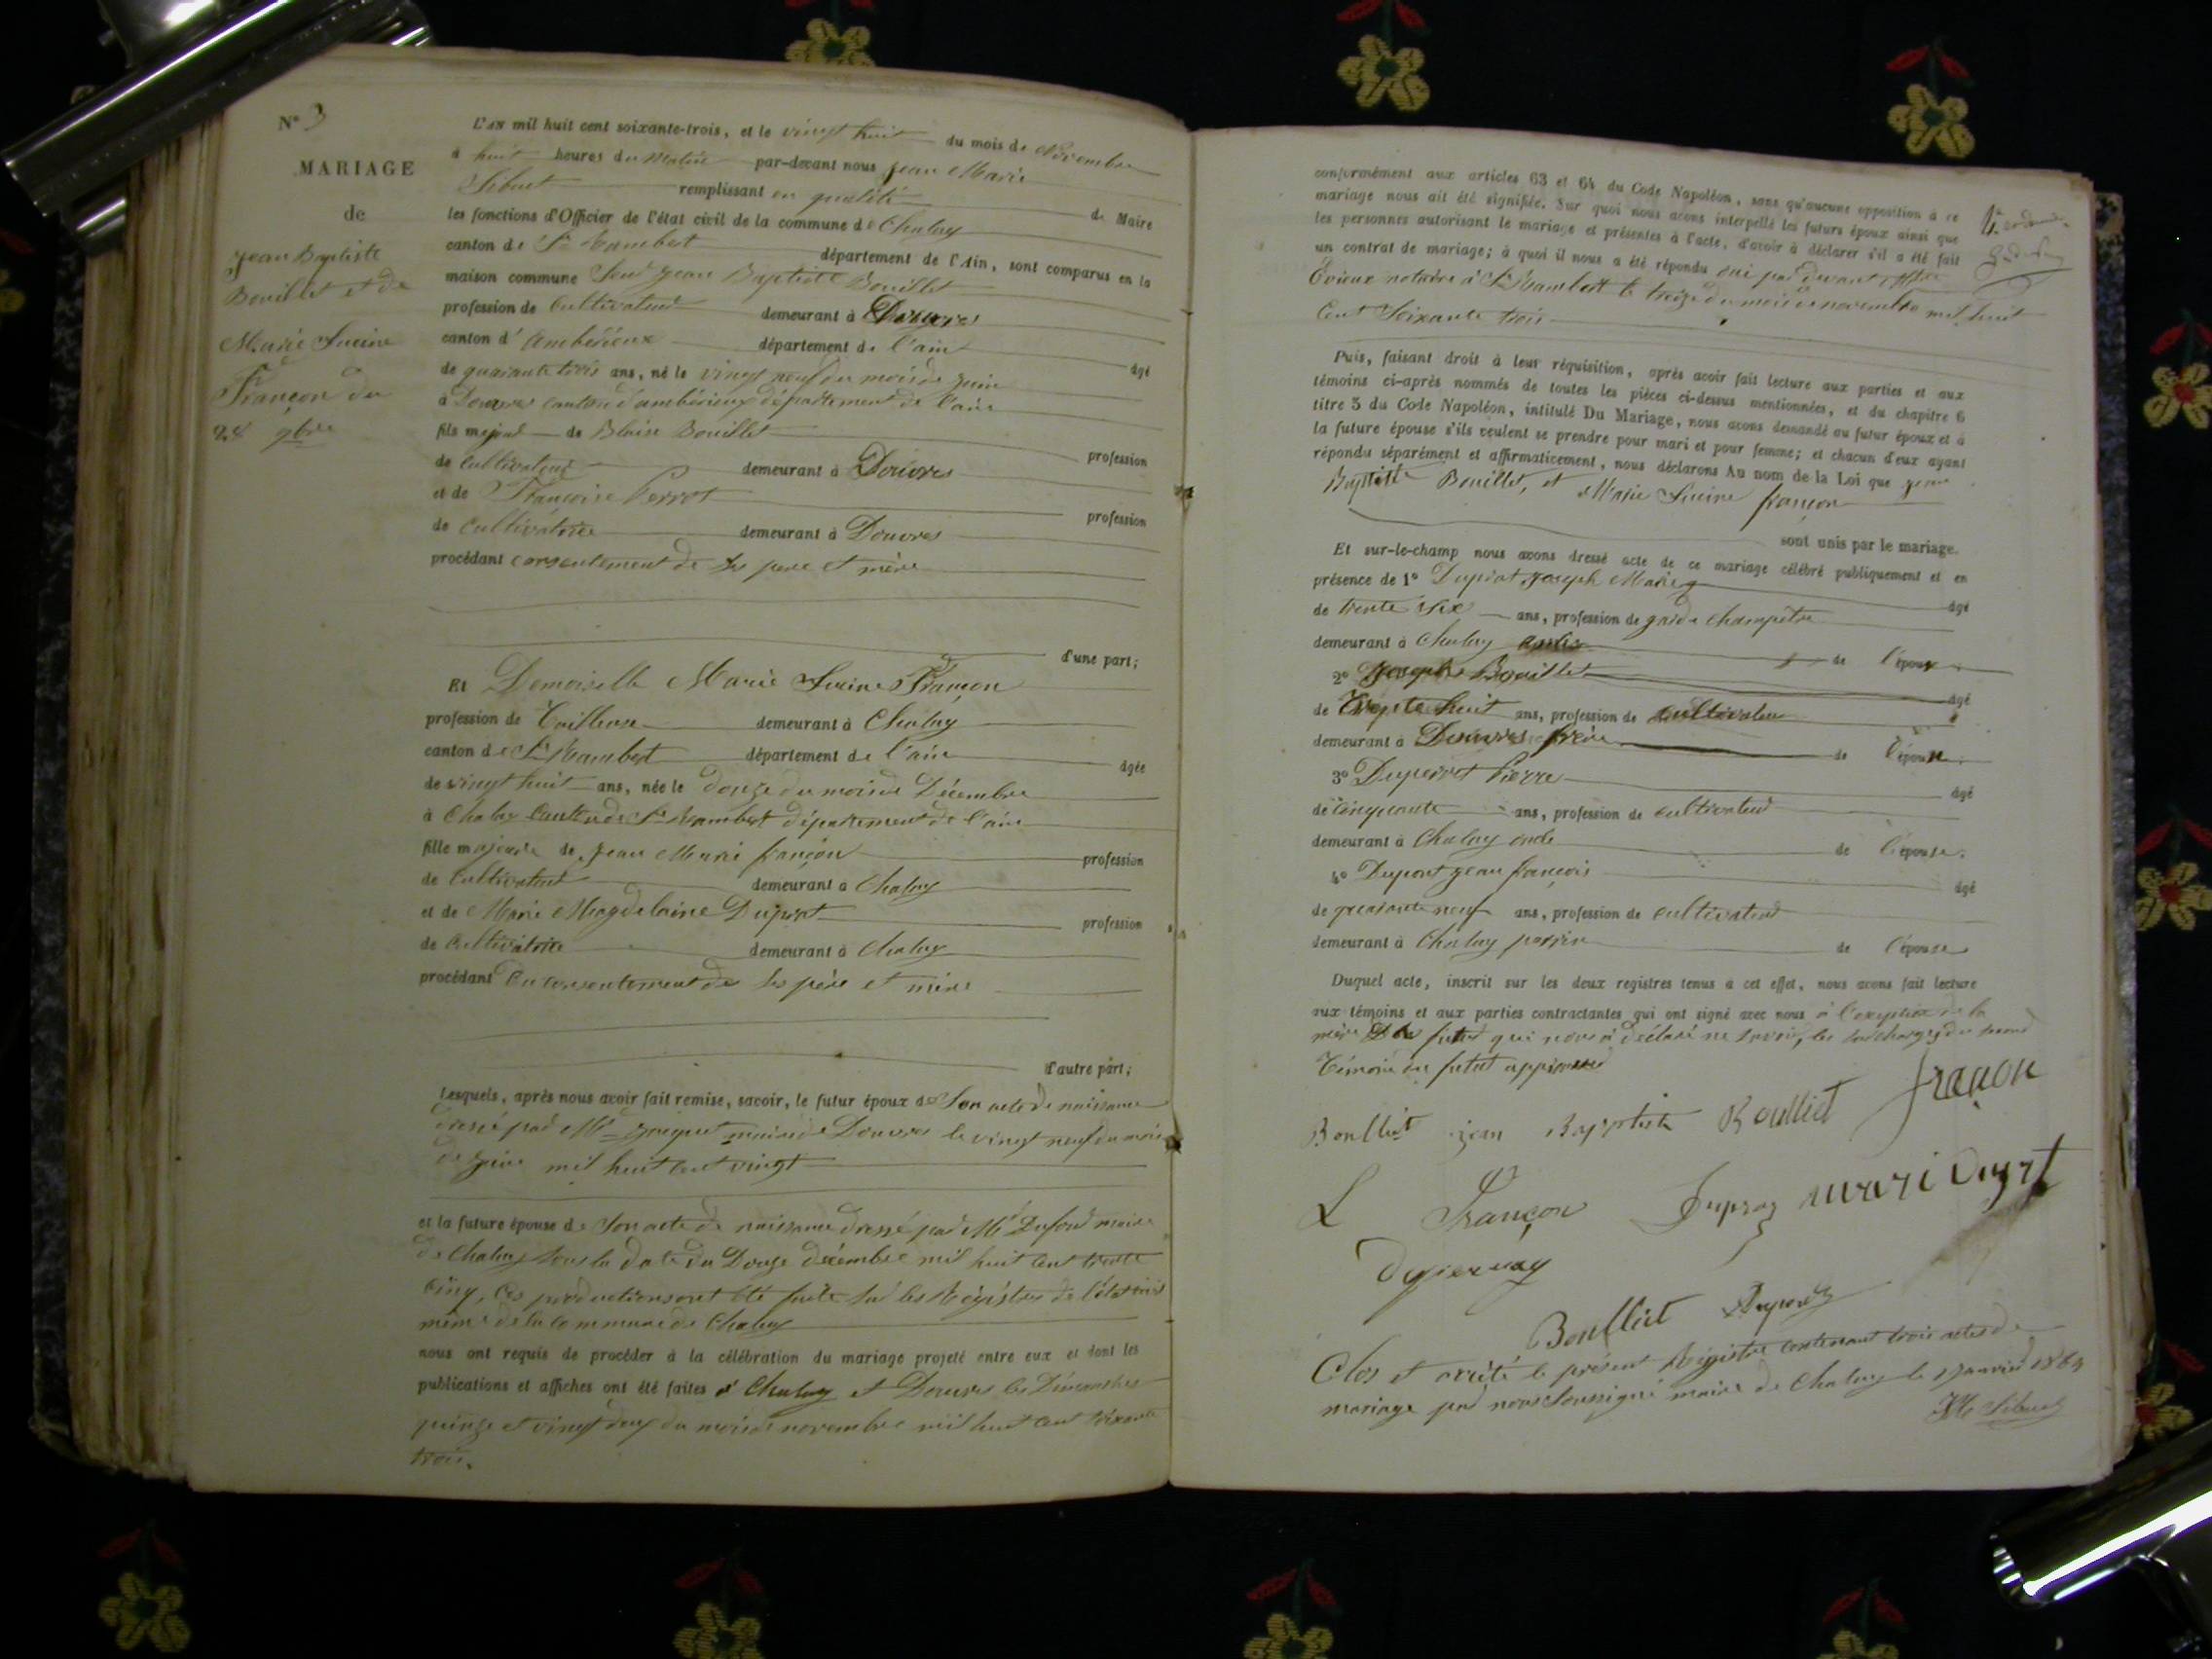 N° 3
MARIAGE
de
Jean Baptiste
Bouillet et de
Marie Lucine
Françon du
28 9bre
L'AN mil huit cent soixante-trois, et le vingt huit du mois de Novembre
à huit heures du matin par-devant nous Jean Marie
Sibuet remplissant en qualité de Maire
les fonctions d'Officier de l'état civil de la commune de Chaley
canton de St Rambert département de l'Ain, sont comparus en la
maison commune Jean Baptiste Bouillet
profession de Cultivateur demeurant à Douvres
canton d'Ambérieux département de l'ain âgé
de quarante trois ans, né le vingt neuf du mois de juin
à Douvres canton d'ambérieux département de l'ain
fils majeur de Blaise Bouillet profession
de cultivateur demeurant à Douvres
et de Françoise Perrot profession
de cultivatrice demeurant à Douvres
procédant consentement de ses père et mère
d'une part;
Et Demoiselle Marie Lucine Françon
profession de Tailleuse demeurant à Chaley
canton de St Rambert département de l'ain âgée
de vingt huit ans, née le douze du mois de Décembre
à Chaley Canton de St Rambert département de l'ain
fille majeure de Jean Marie françon profession
de Cultivateur demeurant à Chaley
et de Marie Magdelaine Duprat profession
de Cultivatrice demeurant à Chaley
procédant du consentement de ses père et mère
d'autre part;
Lesquels, après nous avoir fait remise, savoir, le futur époux de Son acte de naissance
dressé par Mr maire de Douvres le vingt neuf du mois
de Juin mil huit cent vingt
et la future épouse de Son acte de naissance dressé par Mr Dufour maire
de Chaley sous la date du Douze décembre mil huit cent trente
cinq, Ces productions ont été faite sur les Régistres de l'état civil
même de la commune de Chaley
nous ont requis de procéder à la célébration du mariage projeté entre eux et dont les
publications et affiches ont été faites à Chaley et Douvres les Dimanches
quinze et vingt deux du mois de novembre mil huit cent soixante
trois.
conformément aux articles 63 et 64 du Code Napoléon, sans qu'aucune opposition à ce
mariage nous ait été signifiée. Sur quoi nous avons interpellé les futurs époux ainsi que
les personnes autorisant le mariage et présentes à l'acte, d'avoir à déclarer s'il a été fait
un contrat de mariage; à quoi il nous a été répondu oui par devant
notaire à St Rambert le treize du mois de novembre mil huit
Cent Soixante trois
Puis, faisant droit à leur réquisition, après avoir fait lecture aux parties et aux
témoins ci-après nommés de toutes les pièces ci-dessus mentionnées, et du chapitre 6
titre 5 du Code Napoléon, intitulé Du Mariage, nous avons demandé au futur époux et à
la future épouse s'ils veulent se prendre pour mari et pour femme; et chacun d'eux ayant
répondu séparément et affirmativement, nous déclarons Au nom de la Loi que Jean
Baptiste Bouillet, et Marie Lucine françon
sont unis par le mariage.
Et sur-le-champ nous avons dressé acte de ce mariage célébré publiquement et en
présence de 1° Duprat Joseph Marie âgé
de trente six ans, profession de garde champêtre
demeurant à Chaley de l'époux
2° Joseph Bouillet âgé
de Trente huit ans, profession de cultivateur
demeurant à Douvres frère de l'époux.
3° Duperret Pierre âgé
de cinquante ans, profession de cultivateur
demeurant à Chaley oncle de l'épouse.
4° Dupont Jean françois âgé
de quarante neuf ans, profession de cultivateur
demeurant à Chaley de l'épouse
Duquel acte, inscrit sur les deux registres tenus à cet effet, nous avons fait lecture
aux témoins et aux parties contractantes qui ont signé avec nous à l'exception de la
mère du futur qui nous a déclaré ne savoir, les surcharges du second
témoin du futur approuvé
Boulliet jean Baptiste Boulliet françon
L Françon Dupraz
Boulliet
Clos et arrêté le présent Régistre contenant trois actes de
mariage par nous soussigné maire de Chaley le 1er janvier 1864
JM Sibuet